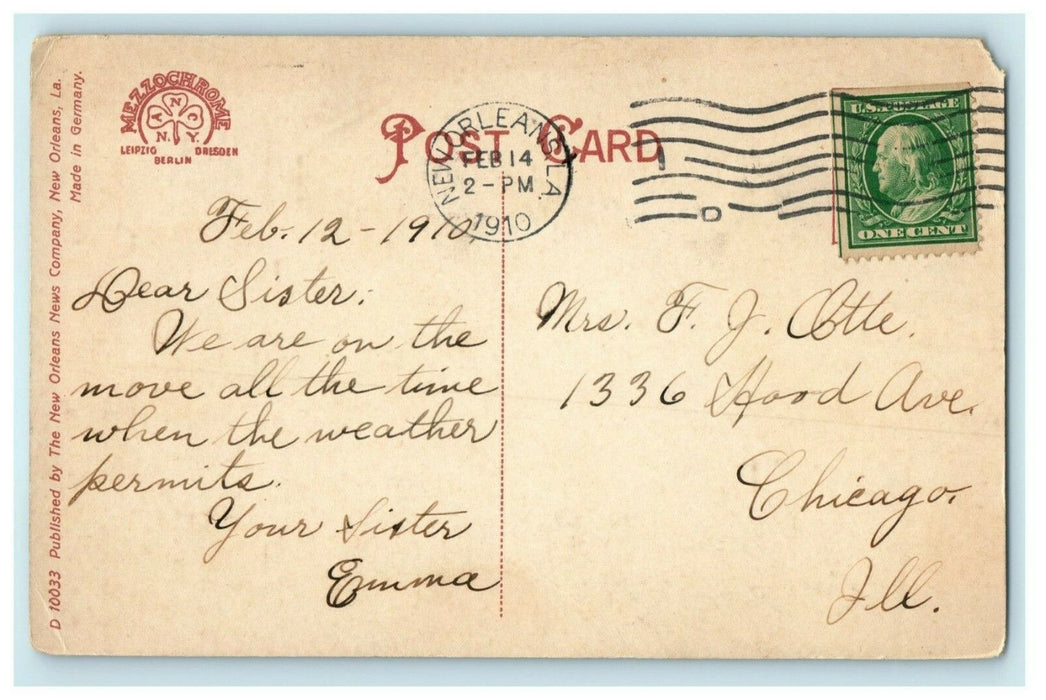 D 10033 Published by The New Orleans News Company, New Orleans, La.
Made in Germany.
MEZZOCHROME
A N C
N.Y.
LEIPZIG DRESDEN
BERLIN
POST CARD
NEW ORLEANS, LA
FEB 14
2-PM
1910
D
U.S. POSTAGE
ONE CENT
Feb. 12-1910.
Dear Sister:
We are on the
move all the time
when the weather
permits.
Your Sister
Emma
Mrs. F. J. Otte.
1336 Hood Ave.
Chicago.
Ill.